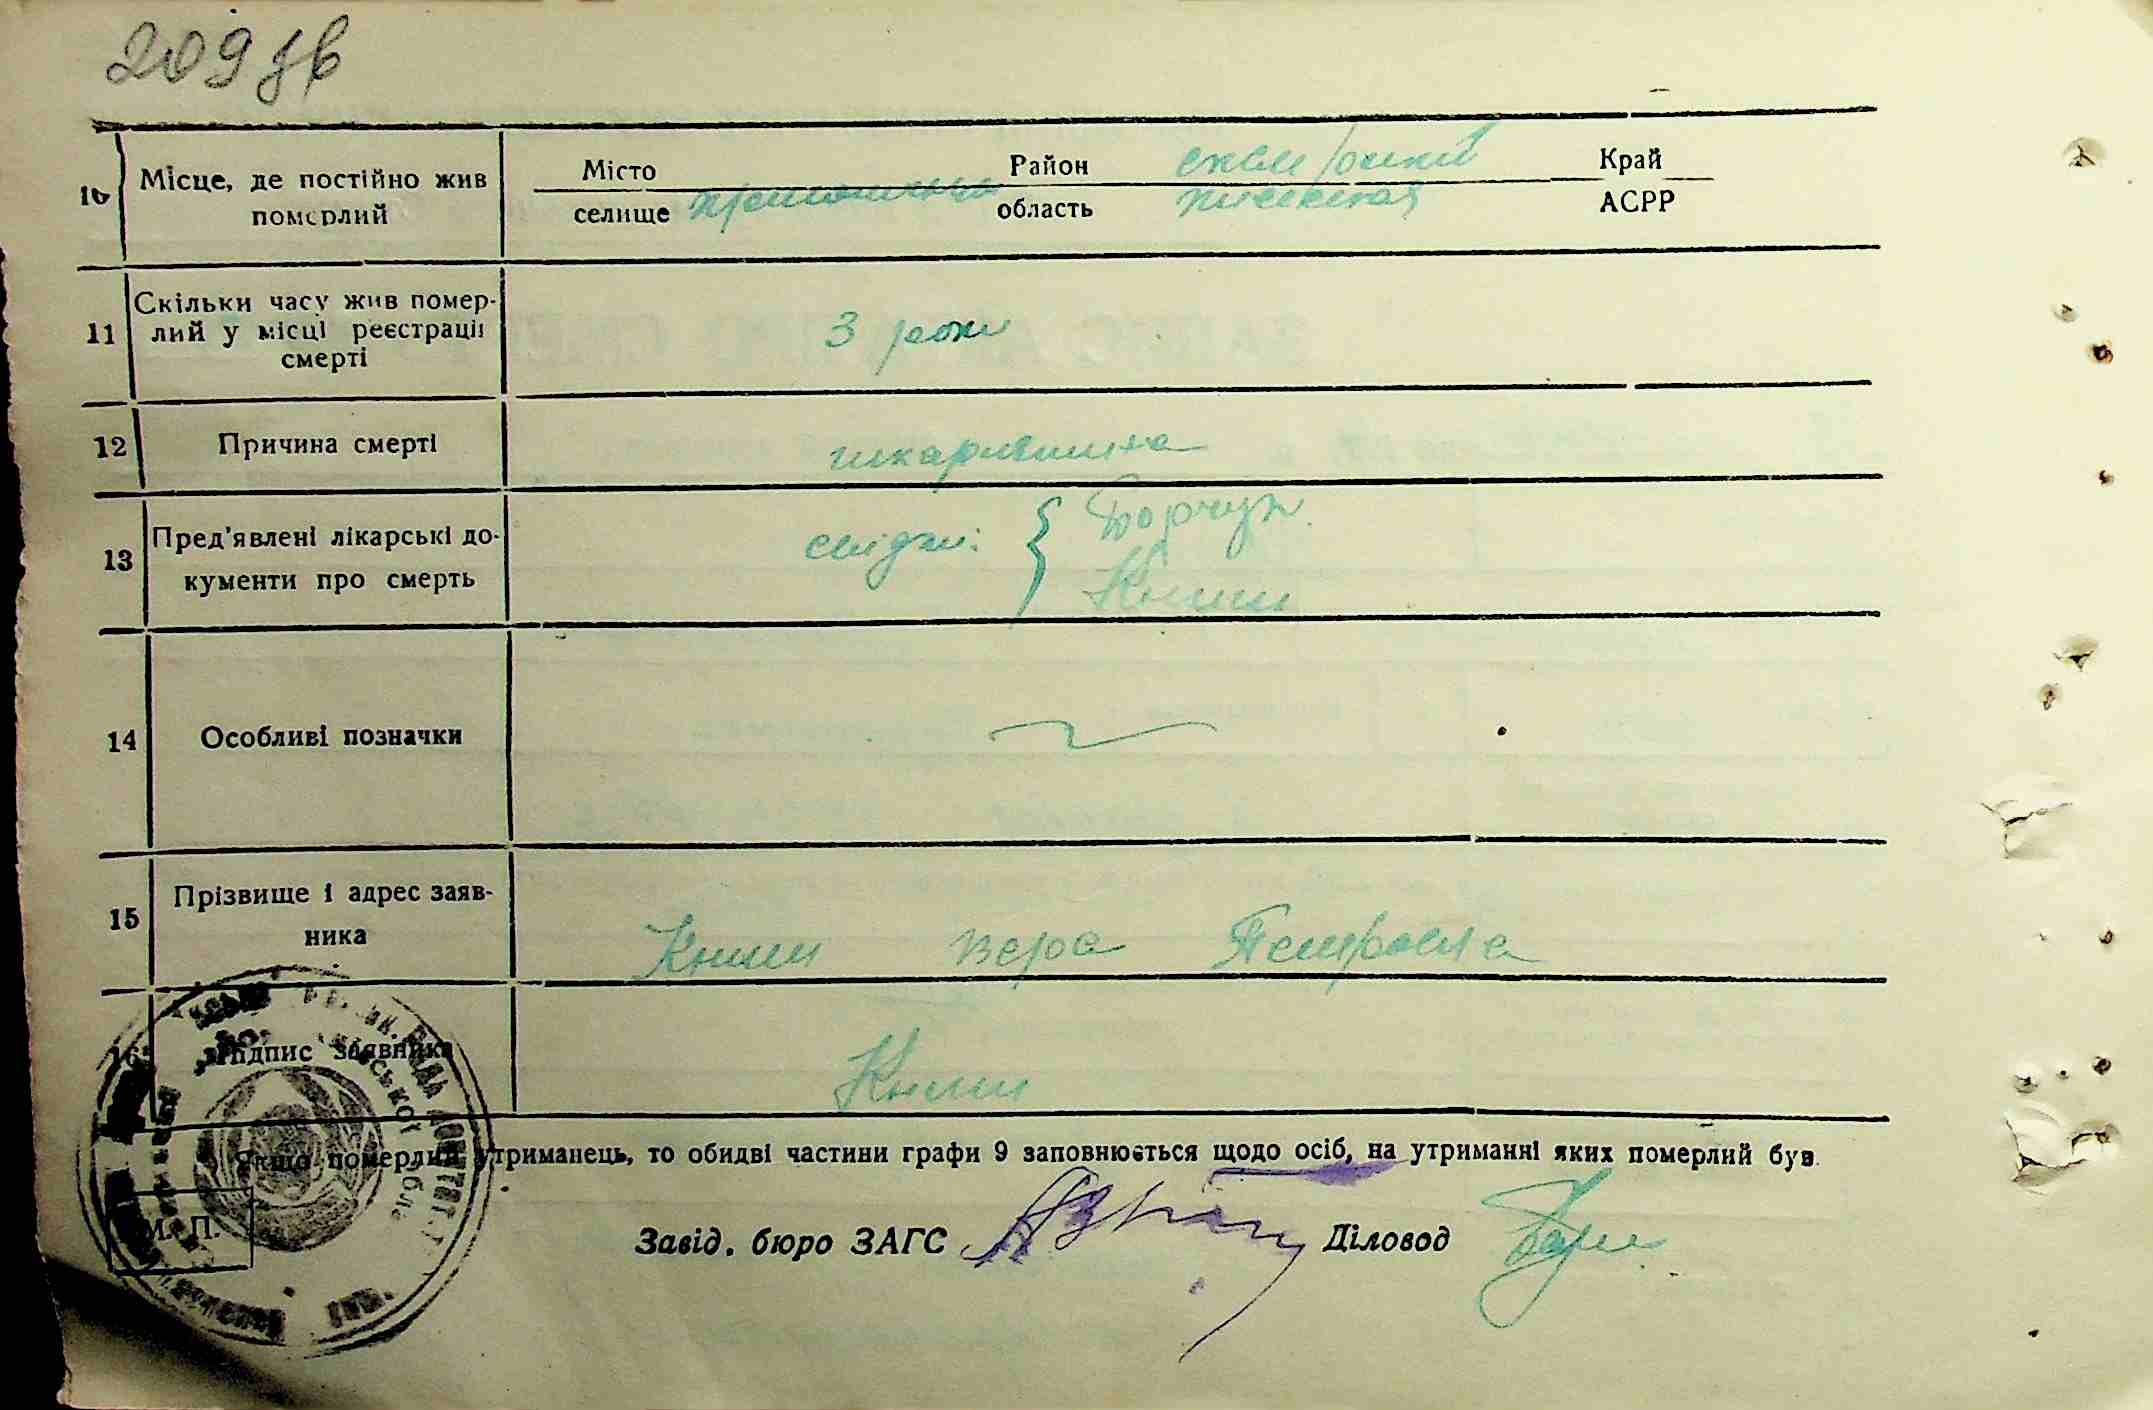 209 зв
10 Місце, де постійно жив
померлий
Місто
селище
Район
область
Край
АСРР
11 Скільки часу жив помер-
лий у місці реєстрації
смерті
3 роки
12 Причина смерті
13 Пред’явлені лікарські до-
кументи про смерть
свідки:
Борчук
Книш
14 Особливі позначки
15 Прізвище і адрес заяв-
ника
Книш Вера Петровна
16 Підпис заявника
Книш
Якщо померлий утриманець, то обидві частини графи 9 заповнюється щодо осіб, на утриманні яких померлий був.
М. П.
Завід. бюро ЗАГС
Діловод